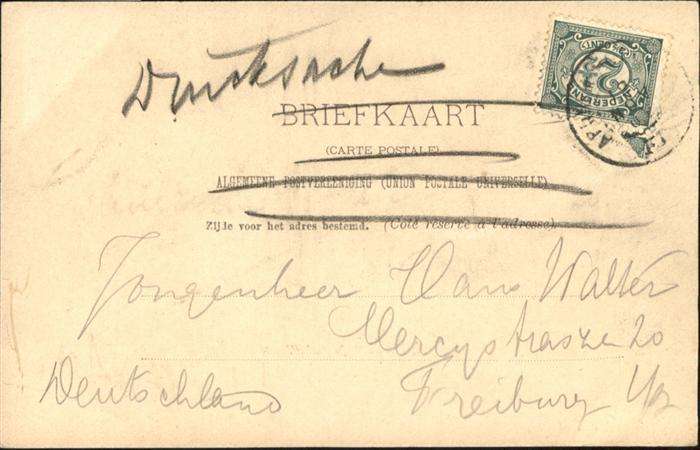 Drucksache
BRIEFKAART
(CARTE POSTALE)
ALGEMEENE POSTVEREENIGING (UNION POSTALE UNIVERSELLE)
Zijde voor het adres bestemd. (Coté réservé à l'adresse)
Jongenheer Hans Walter
Mercystrasze 20
Deutschland Freiburg
NEDERLAND
2½
CENTS